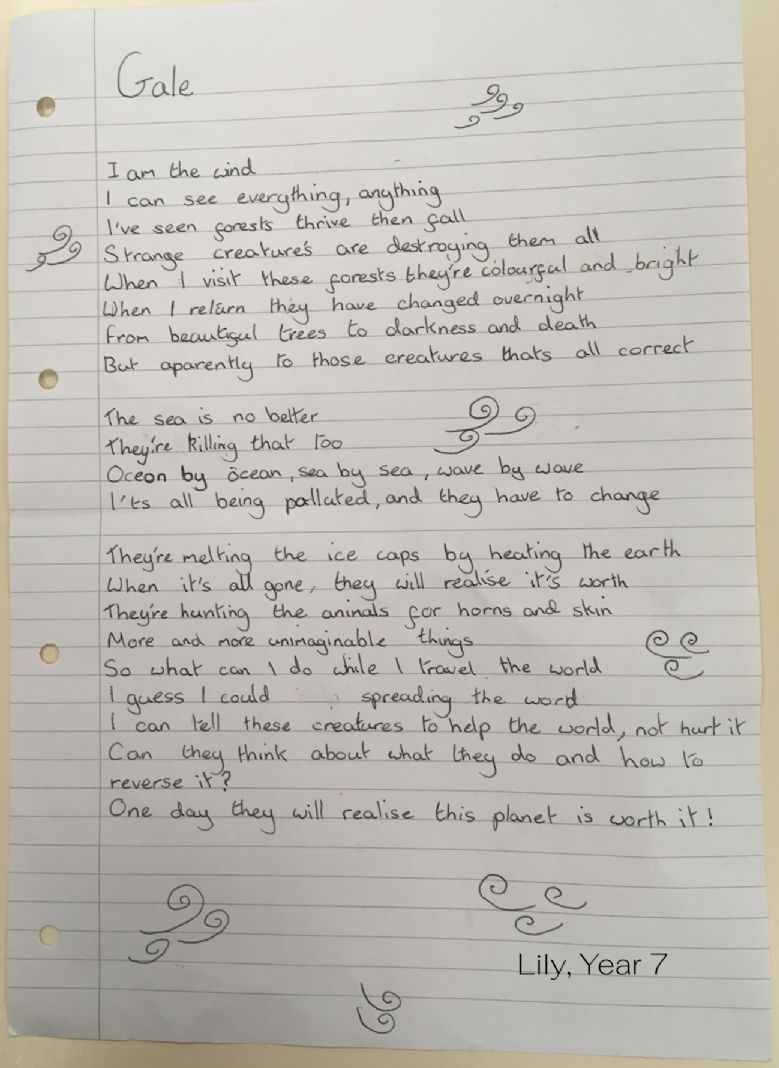 Gale
I am the wind
I can see everything, anything
I've seen forests thrive then fall
Strange creature's are destroying them all
When I visit these forests they're colourful and bright
When I return they have changed overnight
From beautiful trees to darkness and death
But aparently to those creatures thats all correct
The sea is no better
They're killing that too
Oceon by ocean, sea by sea, wave by wave
I'ts all being polluted, and they have to change
They're melting the ice caps by heating the earth
When it's all gone, they will realise it's worth
They're hunting the animals for horns and skin
More and more unimaginable things
So what can I do while I travel the world
I guess I could spreading the word
I can tell these creatures to help the world, not hurt it
Can they think about what they do and how to
reverse it?
One day they will realise this planet is worth it!
Lily, Year 7